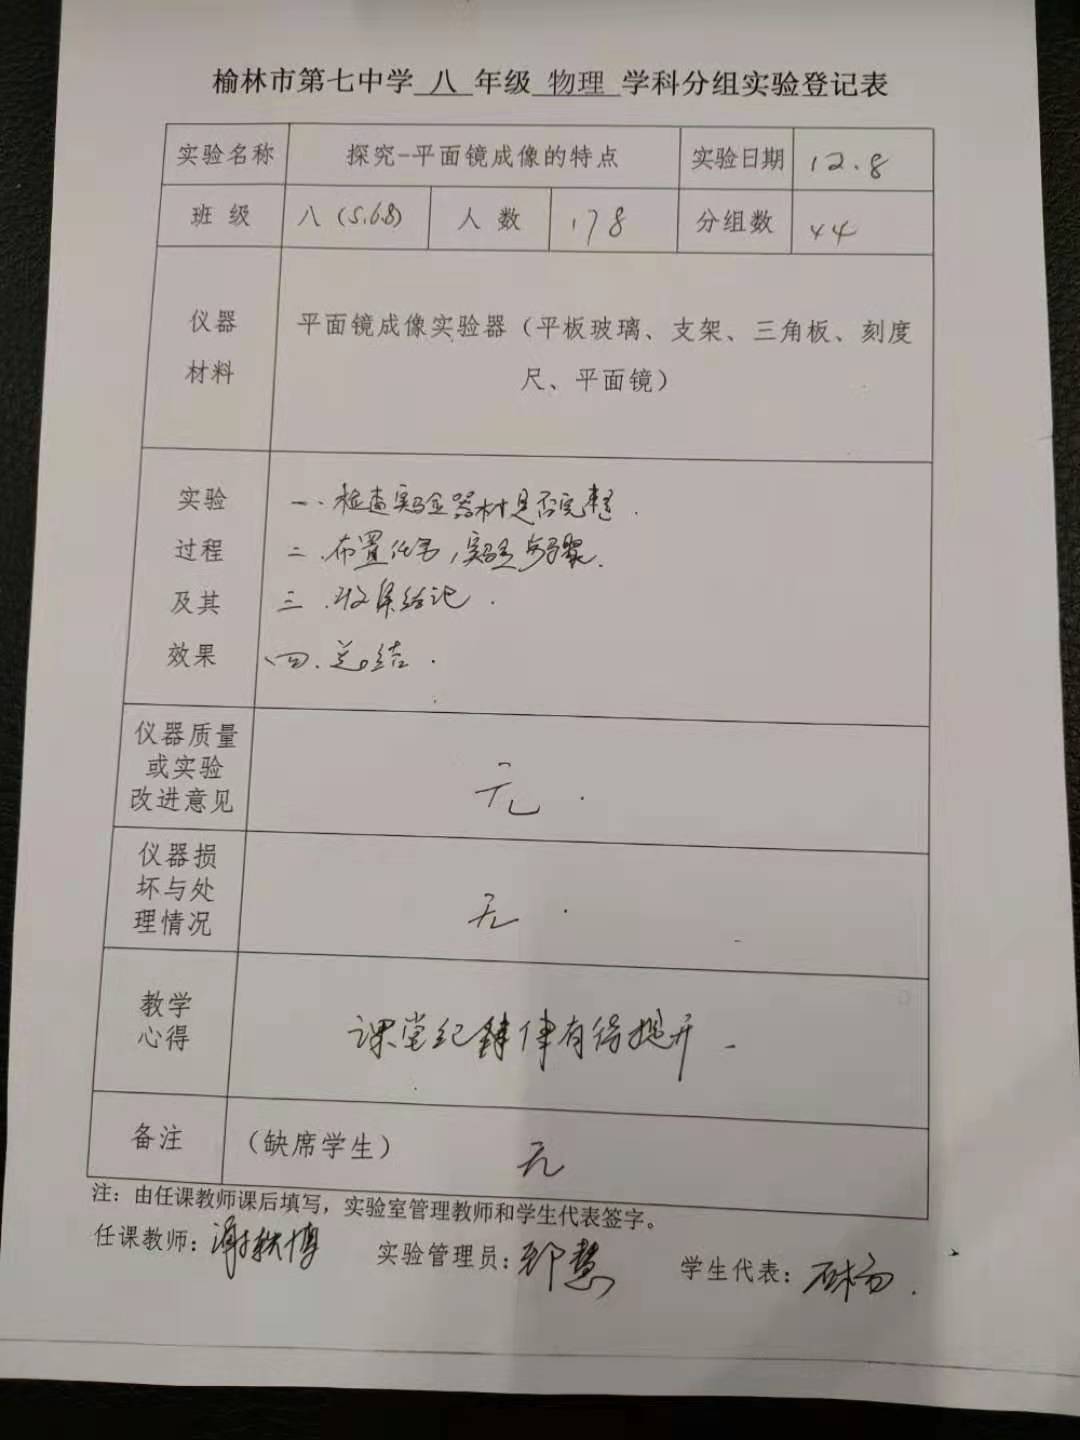 榆林市第七中学 八 年级 物理 学科分组实验登记表
实验名称 探究-平面镜成像的特点 实验日期 12.8
班级 八(5.6.8) 人数 178 分组数 44
仪器
材料
平面镜成像实验器（平板玻璃、支架、三角板、刻度
尺、平面镜）
实验
过程
及其
效果
一.检查实验器材是否完整.
二.布置任务,实验步骤.
三.收集结论.
四.总结.
仪器质量
或实验
改进意见
无.
仪器损
坏与处
理情况
无.
教学
心得
课堂纪律有待提升.
备注 （缺席学生） 无
注：由任课教师课后填写，实验室管理教师和学生代表签字。
任课教师: 实验管理员:郑慧 学生代表: